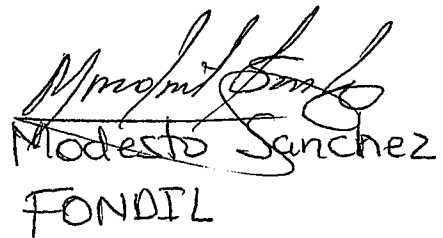 Modesto Sanchez
FONDIL